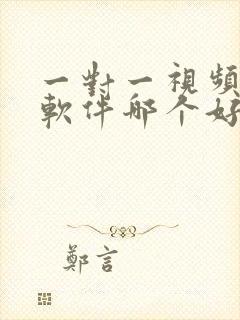 一對一視頻
軟件哪个好
鄭言